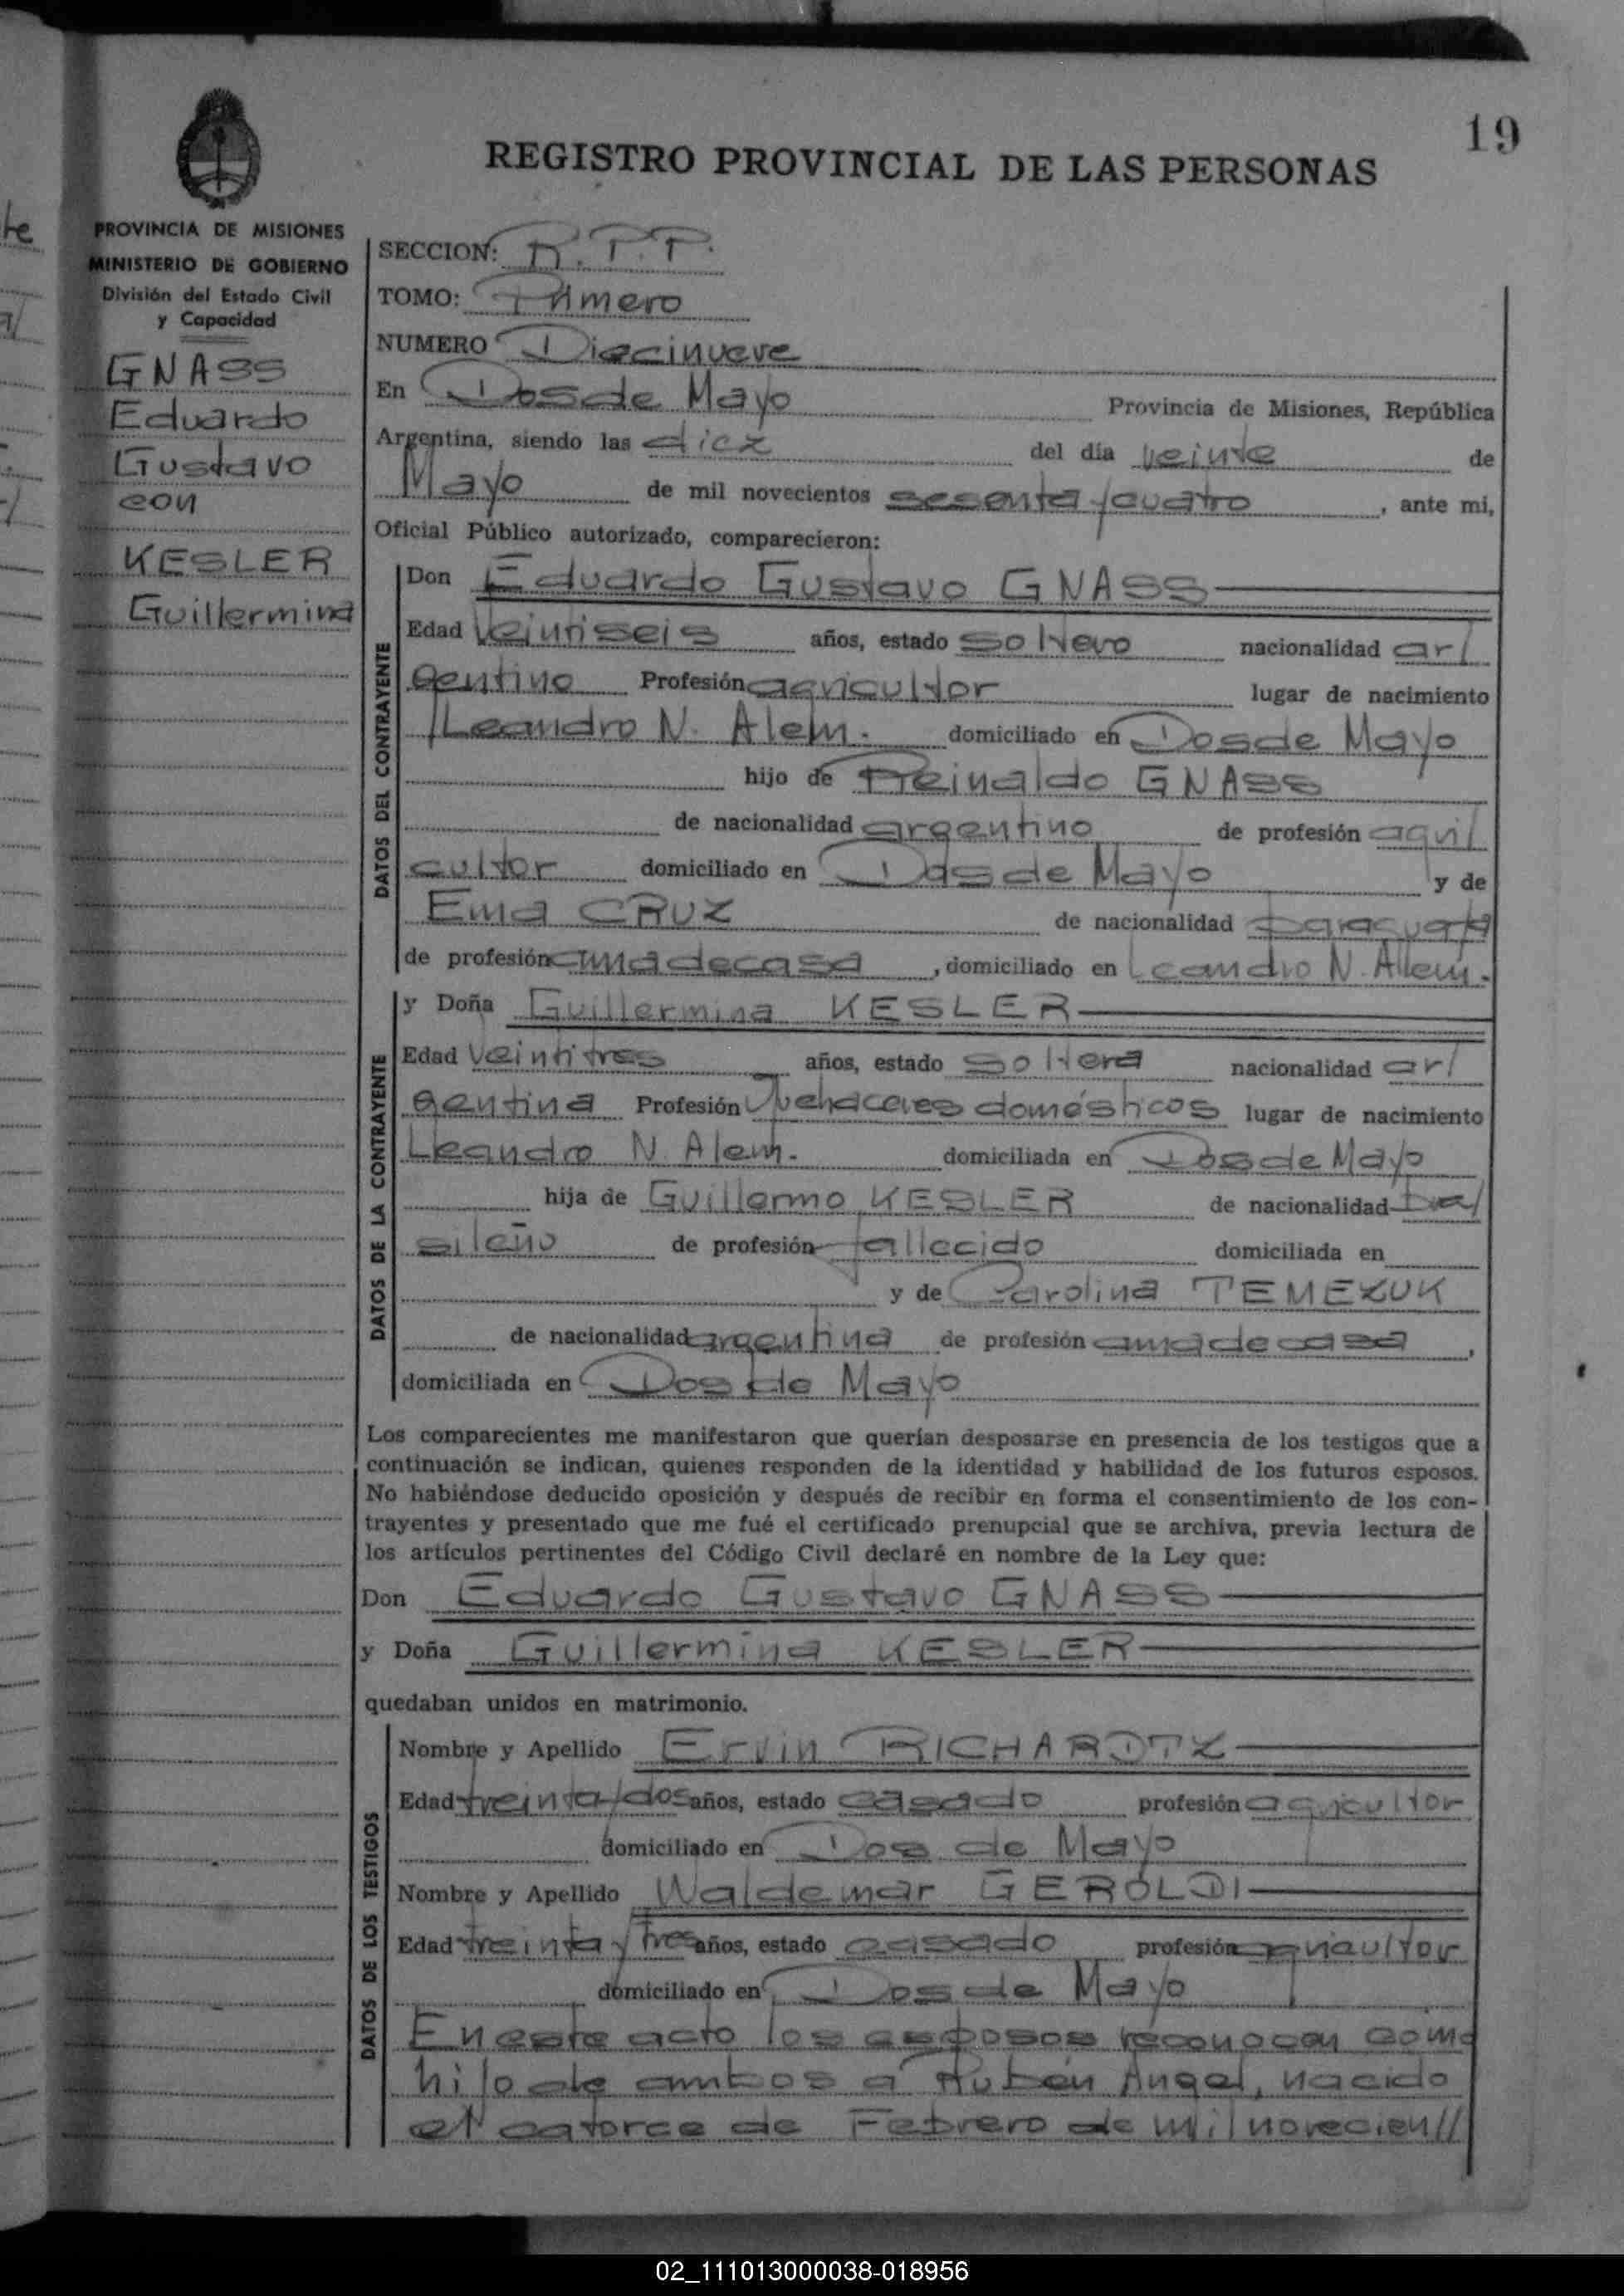 19
REGISTRO PROVINCIAL DE LAS PERSONAS
PROVINCIA DE MISIONES
MINISTERIO DE GOBIERNO
División del Estado Civil
y Capacidad
GNASS
Eduardo
Gustavo
con
KESLER
Guillermina
SECCION: R.P.P.
TOMO: Primero
NUMERO Diecinueve
En Dos de Mayo Provincia de Misiones, República
Argentina, siendo las diez del día veinte de
Mayo de mil novecientos sesenta y cuatro, ante mi,
Oficial Público autorizado, comparecieron:
DATOS DEL CONTRAYENTE
Don Eduardo Gustavo GNASS
Edad veintiseis años, estado soltero nacionalidad ar/
gentino Profesión agricultor lugar de nacimiento
Leandro N. Alem. domiciliado en Dos de Mayo
hijo de Reinaldo GNASS
de nacionalidad argentino de profesión agri/
cultor domiciliado en Dos de Mayo y de
Ema CRUZ de nacionalidad
de profesión ama de casa, domiciliado en Leandro N. Alem.
DATOS DE LA CONTRAYENTE
y Doña Guillermina KESLER
Edad veintitres años, estado soltera nacionalidad ar/
gentina Profesión Quehaceres domésticos lugar de nacimiento
Leandro N. Alem. domiciliada en Dos de Mayo
hija de Guillermo KESLER de nacionalidad bra/
sileño de profesión fallecido domiciliada en
y de Carolina TEMEZUK
de nacionalidad argentina de profesión ama de casa,
domiciliada en Dos de Mayo
Los comparecientes me manifestaron que querían desposarse en presencia de los testigos que a
continuación se indican, quienes responden de la identidad y habilidad de los futuros esposos.
No habiéndose deducido oposición y después de recibir en forma el consentimiento de los con-
trayentes y presentado que me fué el certificado prenupcial que se archiva, previa lectura de
los artículos pertinentes del Código Civil declaré en nombre de la Ley que:
Don Eduardo Gustavo GNASS
y Doña Guillermina KESLER
quedaban unidos en matrimonio.
DATOS DE LOS TESTIGOS
Nombre y Apellido Ervin RICHARDTZ
Edad treinta y dos años, estado casado profesión agricultor
domiciliado en Dos de Mayo
Nombre y Apellido Waldemar GEROLDI
Edad treinta y tres años, estado casado profesión agricultor
domiciliado en Dos de Mayo
En este acto los esposos reconocen como
hijo de ambos a Rubén Angel, nacido
el catorce de Febrero de mil novecien//
02_111013000038-018956